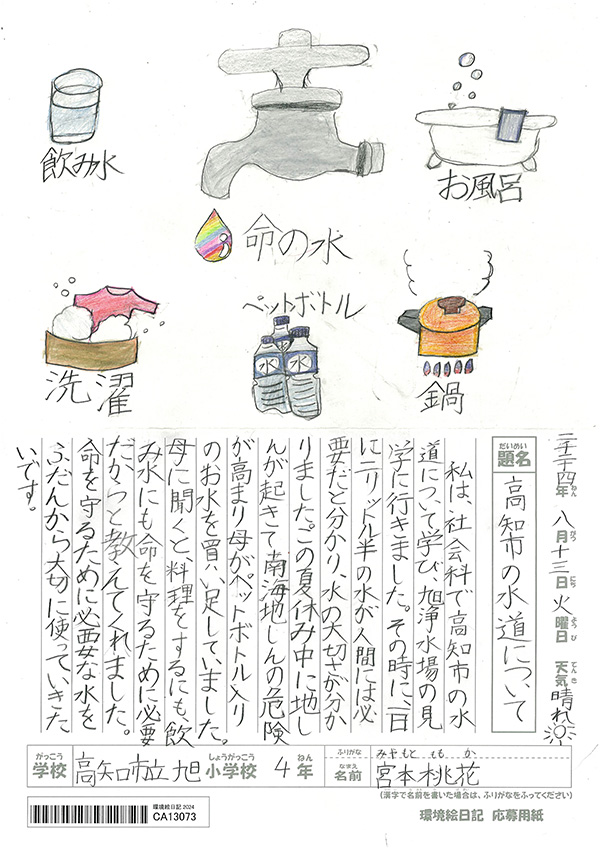 飲み水
お風呂
命の水
ペットボトル
水
水
水
洗濯
鍋
二千二十四年 八月十三日 火曜日 天気 晴れ
ねん がつ にち ようび てんき
だいめい
題名
高知市の水道について
私は、社会科で高知市の水
道について学び、旭浄水場の見
学に行きました。その時に、一日
に二リットル半の水が人間には必
要だと分かり、水の大切さが分か
りました。この夏休み中に地し
んが起きて南海地しんの危険
が高まり母がペットボトル入り
のお水を買い足していました。
母に聞くと、料理をするにも、飲
み水にも命を守るために必要
だからと教えてくれました。
命を守るために必要な水を
ふだんから大切に使っていきた
いです。
がっこう
学校
高知市立旭
しょうがっこう
小学校
4
ねん
年
ふりがな
みやもと ももか
なまえ
名前
宮本桃花
(漢字で名前を書いた場合は、ふりがなをふってください)
環境絵日記 2024
CA13073
環境絵日記 応募用紙